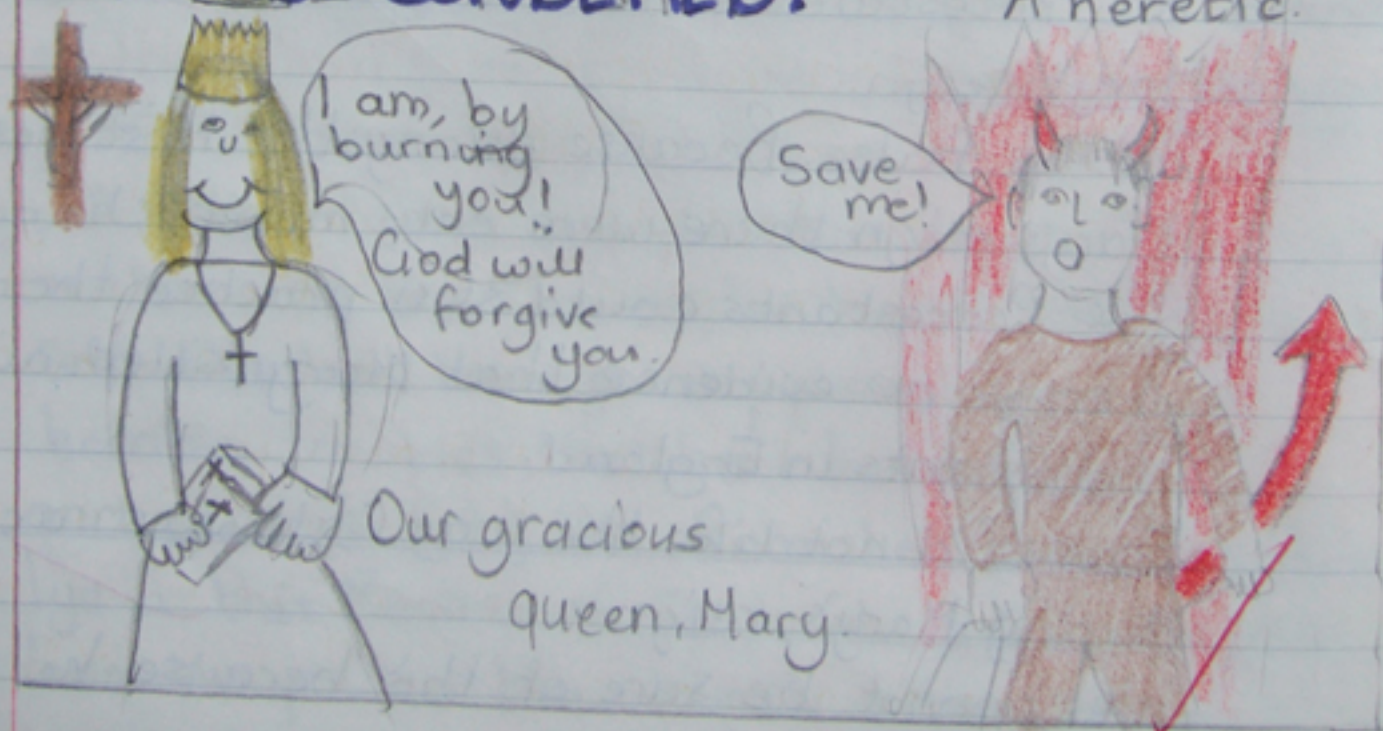 A heretic.
I am, by
burning
you!
God will
forgive
you.
Save
me!
Our gracious
queen, Mary.